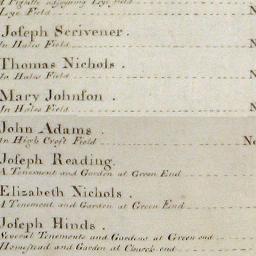 A Pightle adjoining Lyes Field
Lyes Field
Joseph Scrivener.
In Hales Field
Thomas Nichols.
In Hales Field
Mary Johnson.
In Hales Field
John Adams.
In High Croft Field No
Joseph Reading.
A Tenement and Garden at Green End
Elizabeth Nichols.
A Tenement and Garden at Green End
Joseph Hinds.
Several Tenements and Gardens at Green end
Homestead and Garden at Church end